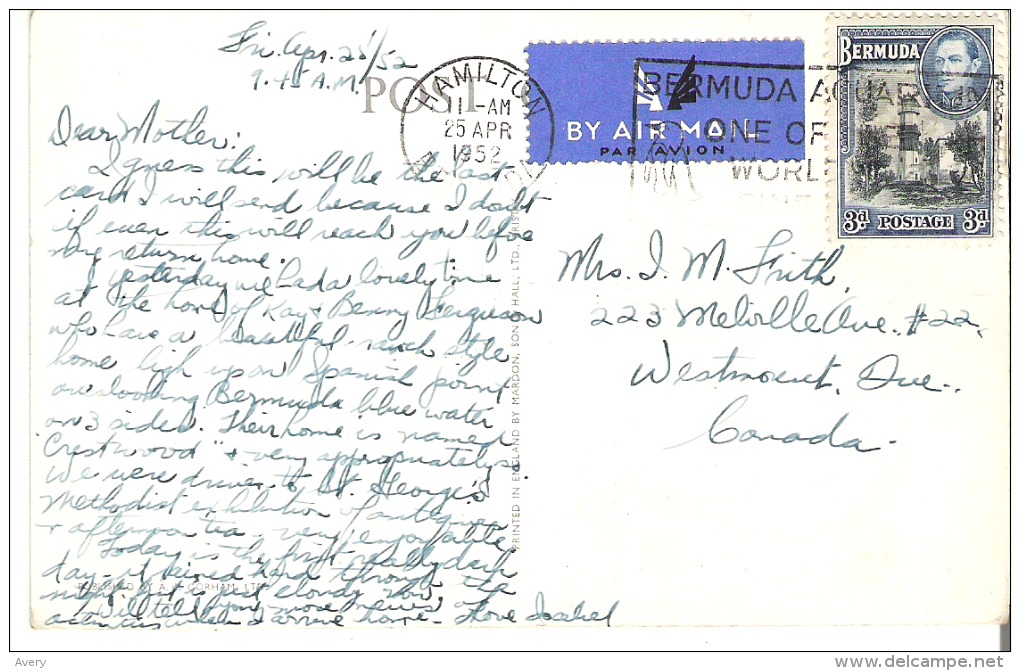 Fri. Apr. 25/52
9.45 A.M.
POST
HAMILTON
11-AM
25 APR
1952
BY AIR MAIL
PAR AVION
BERMUDA AQUARIUM
ONE OF
WORL
BERMUDA
3d POSTAGE 3d
Dear Mother:
I guess this will be the last
card I will send because I doubt
if even this will reach you before
my return home.
Yesterday we had a lovely time
at the home of Kay & Benny Ferguson
who have a beautiful ranch style
home high up on Spanish point
overlooking Bermuda blue water
on 3 sides. Their home is named
Crestwood" & very appropriately so
We were driven to St. George's
Methodist exhibition of antiques
& afternoon tea - very enjoyable.
Today is the first really dark
day - it rained hard through the
night but is just cloudy now.
Will tell you more news of
activities when I arrive home - Love Isabel
Mrs. I. M. Frith,
223 Melville Ave. #22,
Westmount, Que..
Canada-
PRINTED IN ENGLAND BY MARDON, SON & HALL, LTD.
PUBLISHED BY A. GORHAM, LTD
Avery
delcampe.net